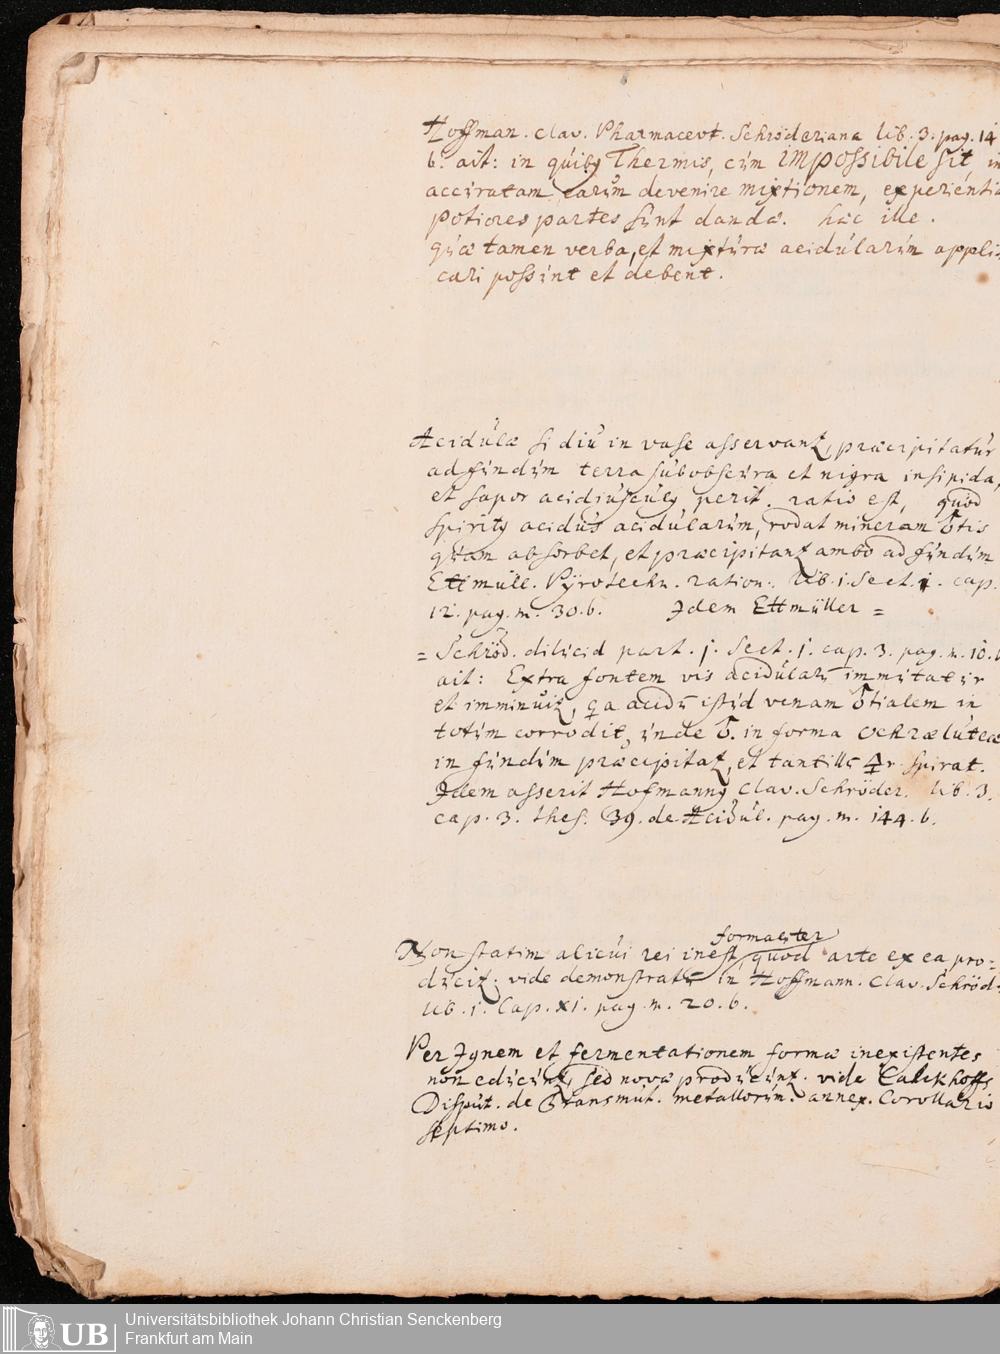 Hoffman. Clav. Pharmacevt. Schröderiana lib. 3. pag. 14
6. ait: in quibꝰ Thermis, cum impossibile sit, in
accuratam earum devenire mixtionem, experientiæ
potiores partes sunt dandæ. hæc ille.
quæ tamen verba, et mixturæ acidularum appli=
cari possunt et debent.
Acidulæ si diu in vase asservant, præcipitatur
ad fundum terra subobscura et nigra insipida,
et sapor acidiusculꝰ perit. ratio est, quod
spiritꝰ acidus acidularum, rodat mineram ♂tis
quam absorbet, et præcipitant ambo ad fundum
Ettmüll. Pyrotechn. ration: lib. 1. Sect. 1. cap.
12. pag. m. 30. b. Idem Ettmüller =
= Schröd. dilucid part. 1. Sect. 1. cap. 3. pag. m. 10.
ait: Extra fontem vis acidular immutatur
et imminuit, qa acid istud venam ♂tialem in
totum corrodit, unde ♂. in forma ochræ luteæ
in fundum præcipitat, et tantill r. spirat.
Idem asserit Hofmannꝰ Clav. Schröder. lib. 3.
cap. 3. thes. 39. de Acidul. pag. m. 144. b.
formaliter
Non statim alicui rei inest, quod arte ex ea pro=
ducit; vide demonstrat in Hoffmann. Clav. Schröd.
lib. 1. Cap. XI. pag. m. 20. b.
Per Ignem et fermentationem formæ inexistentes
non educunt, sed novæ producunt. vide Calckhoffs
Disput. de Transmut. metallorum. annex. Corollario
septimo.
Universitätsbibliothek Johann Christian Senckenberg
Frankfurt am Main
UB